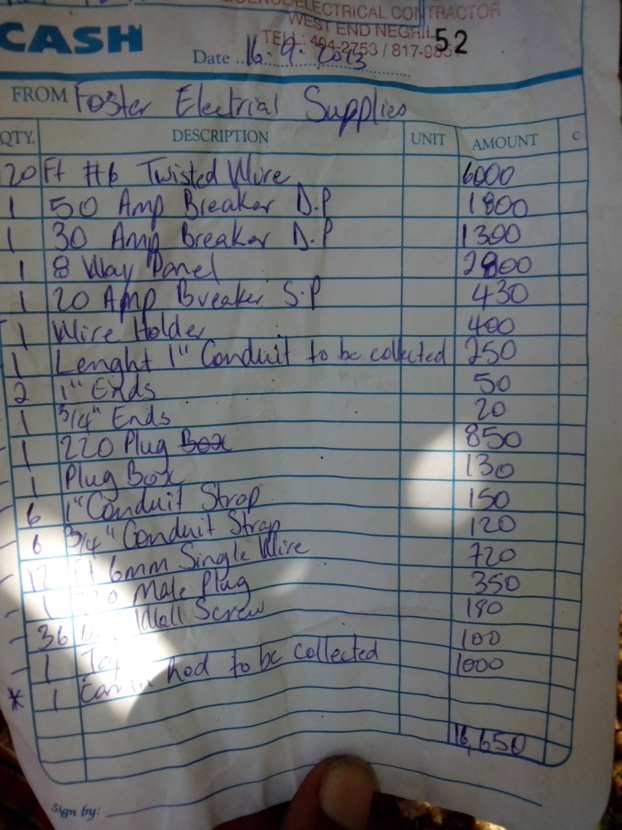 ELECTRICAL CONTRACTOR
WEST END NEGRIL
CASH
52
Date 16. 9. 2013
FROM Foster Electrial Supplies
QTY. DESCRIPTION UNIT AMOUNT C
20 Ft #6 Twisted Wire 6000
1 50 Amp Breaker D.P 1800
1 30 Amp Breaker D.P 1300
1 8 Way Panel 2800
1 20 Amp Breaker S.P 430
1 Wire Holder 400
1 Lenght 1" Conduit to be collected 250
2 1" Ends 50
1 3/4" Ends 20
1 220 Plug Box 850
1 Plug Box 130
6 1" Conduit Strap 150
6 3/4" Conduit Strap 120
12 Ft 6mm Single Wire 720
1 Male Plug 350
36 Wall Screw 180
1 100
* 1 hod to be collected 1000
16,650
Sign by: